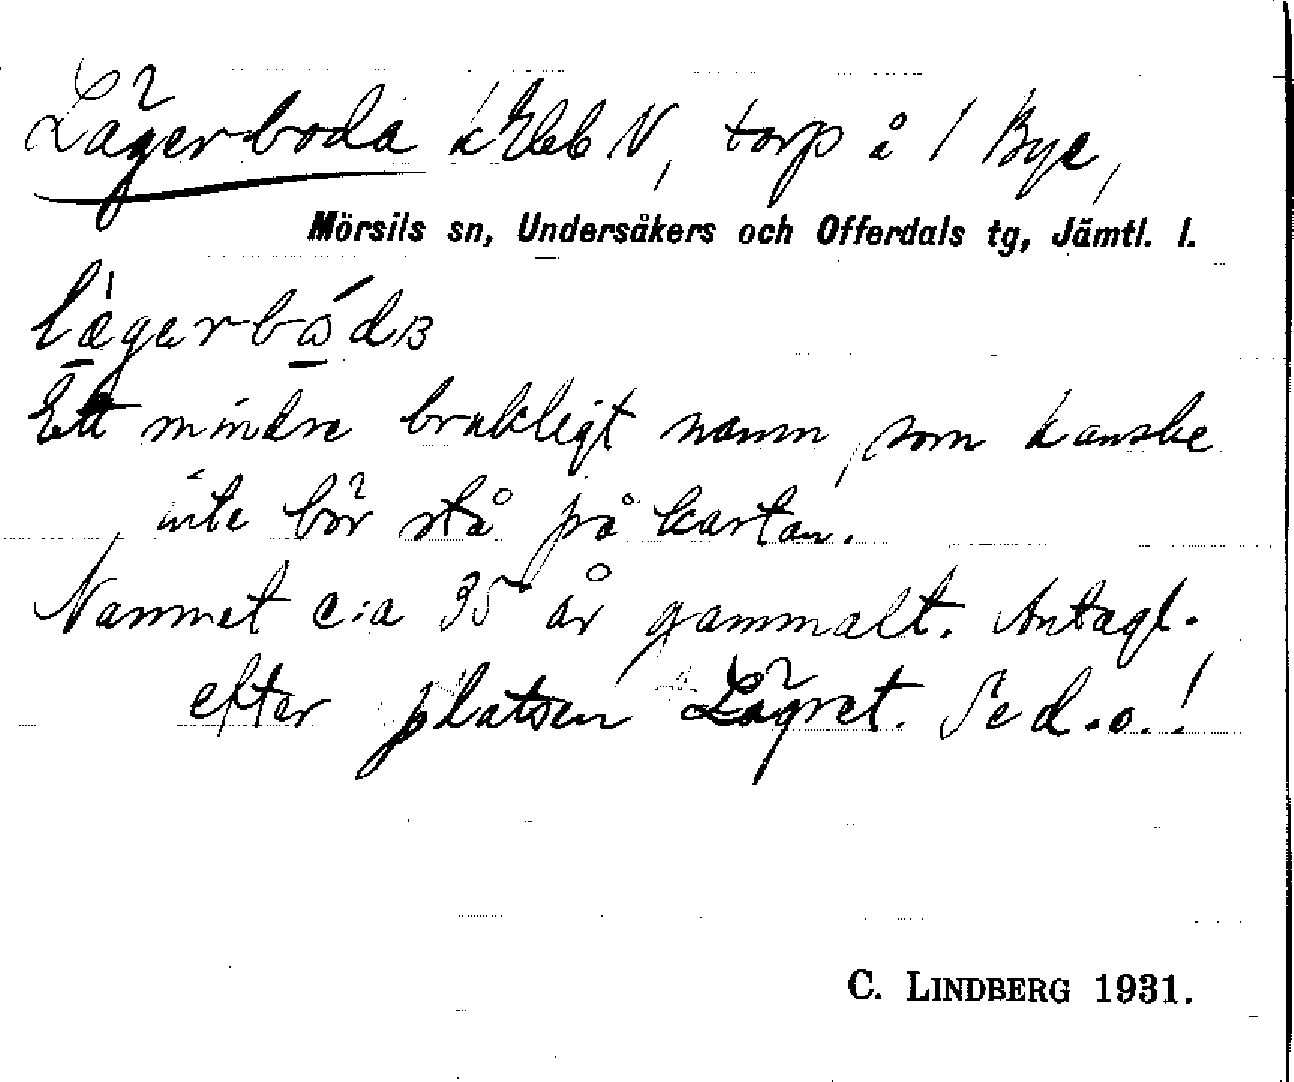 Lägerboda kEkb N, torp å 1 Bye,
Mörsils sn, Undersåkers och Offerdals tg, Jämtl. l.
Ett mindre brukligt namn, som kanske
inte bör stå på kartan.
Namnet c:a 35 år gammalt. Antagl.
efter platsen Lägret. Se d.o.!
C. LINDBERG 1931.